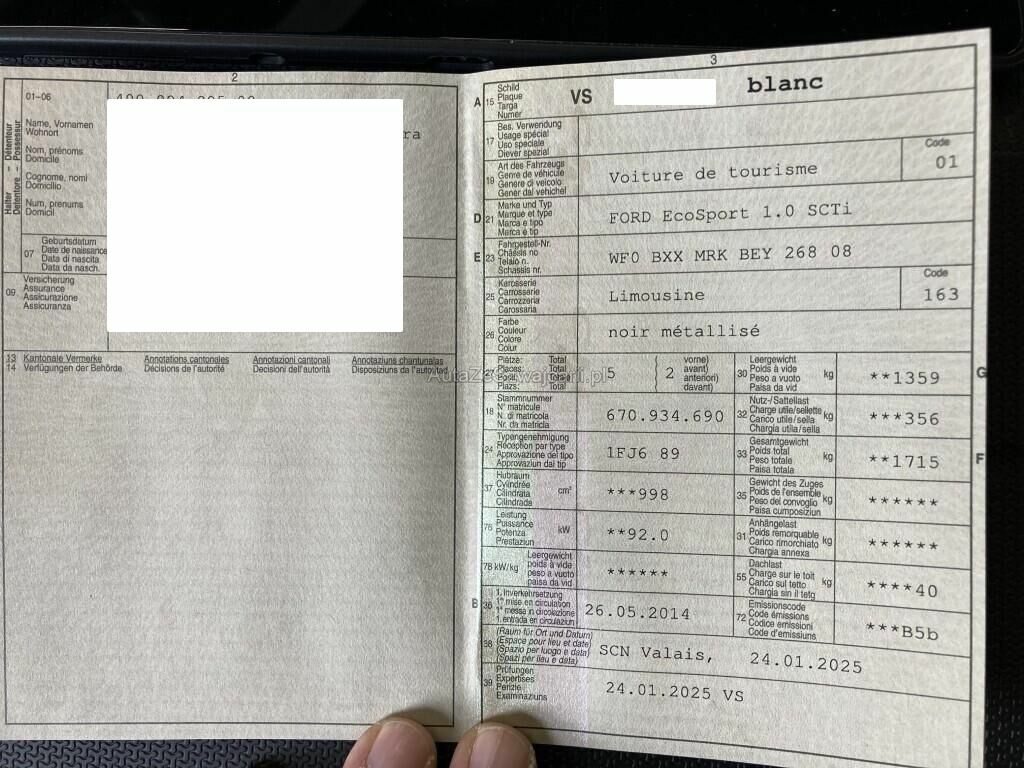 2
01–06
Halter – Détenteur
Detentore – Possessur
Name, Vornamen
Wohnort
Nom, prénoms
Domicile
Cognome, nomi
Domicilio
Num, prenums
Domicil
ra
07
Geburtsdatum
Date de naissance
Data di nascita
Data da nasch.
09
Versicherung
Assurance
Assicurazione
Assicuranza
13
14
Kantonale Vermerke
Verfügungen der Behörde
Annotations cantonales
Décisions de l'autorité
Annotazioni cantonali
Decisioni dell'autorità
Annotaziuns chantunalas
Disposiziuns da l'autoritad
3
A 15
Schild
Plaque
Targa
Numer
VS blanc
17
Bes. Verwendung
Usage spécial
Uso speciale
Diever spezial
19
Art des Fahrzeugs
Genre de véhicule
Genere di veicolo
Gener dal vehichel
Voiture de tourisme
Code
01
D 21
Marke und Typ
Marque et type
Marca e tipo
Marca e tip
FORD EcoSport 1.0 SCTi
E 23
Fahrgestell-Nr.
Châssis no
Telaio n.
Schassis nr.
WF0 BXX MRK BEY 268 08
25
Karosserie
Carrosserie
Carrozzeria
Carossaria
Limousine
Code
163
26
Farbe
Couleur
Colore
Colur
noir métallisé
Plätze: Total
Places: Total
Total
Plazs: Total
5
( 2
vorne)
avant)
anteriori)
davant)
30
Leergewicht
Poids à vide
Peso a vuoto
Paisa da vid
kg
**1359
G
18
Stammnummer
N° matricule
N. di matricola
Nr. da matricla
670.934.690
32
Nutz-/Sattellast
Charge utile/sellette
Carico utile/sella
Chargia utila/sella
kg
***356
24
Typengenehmigung
Réception par type
Approvazione del tipo
Approvaziun dal tip
1FJ6 89
33
Gesamtgewicht
Poids total
Peso totale
Paisa totala
kg
**1715
F
37
Hubraum
Cylindrée
Cilindrata
Cilindrada
cm³
***998
35
Gewicht des Zuges
Poids de l'ensemble
Peso del convoglio
Paisa cumposiziun
kg
******
76
Leistung
Puissance
Potenza
Prestaziun
kW
**92.0
31
Anhängelast
Poids remorquable
Carico rimorchiato
Chargia annexa
kg
******
78 kW/kg
Leergewicht
poids à vide
peso a vuoto
paisa da vid
******
55
Dachlast
Charge sur le toit
Carico sul tetto
Chargia sin il tetg
kg
****40
B 36
1. Inverkehrsetzung
1re mise en circulation
1a messa in circolazione
1. entrada en circulaziun
26.05.2014
72
Emissionscode
Code émissions
Codice emissioni
Code d'emissiuns
***B5b
38
(Raum für Ort und Datum)
(Espace pour lieu et date)
(Spazio per luogo e data)
(Spazi per lieu e data)
SCN Valais, 24.01.2025
39
Prüfungen
Expertises
Perizie
Examinaziuns
24.01.2025 VS